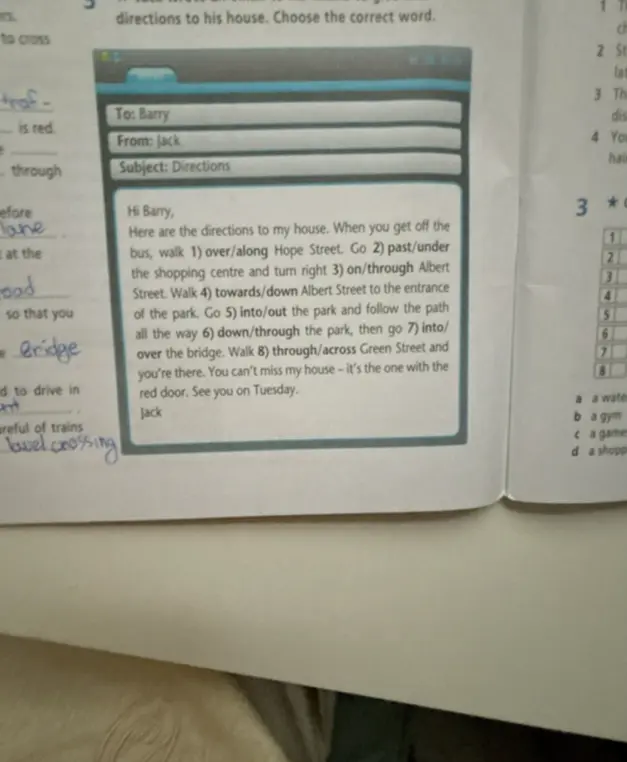 directions to his house. Choose the correct word.
To: Barry
From: Jack
Subject: Directions
Hi Barry,
Here are the directions to my house. When you get off the
bus, walk 1) over/along Hope Street. Go 2) past/under
the shopping centre and turn right 3) on/through Albert
Street. Walk 4) towards/down Albert Street to the entrance
of the park. Go 5) into/out the park and follow the path
all the way 6) down/through the park, then go 7) into/
over the bridge. Walk 8) through/across Green Street and
you're there. You can't miss my house – it's the one with the
red door. See you on Tuesday.
Jack
to cross
is red.
through
lane
at the
so that you
Bridge
to drive in
of trains
level crossing
1
2
3
4
3 ★
1
2
3
4
5
6
7
8
a a
b a gym
c a
d a